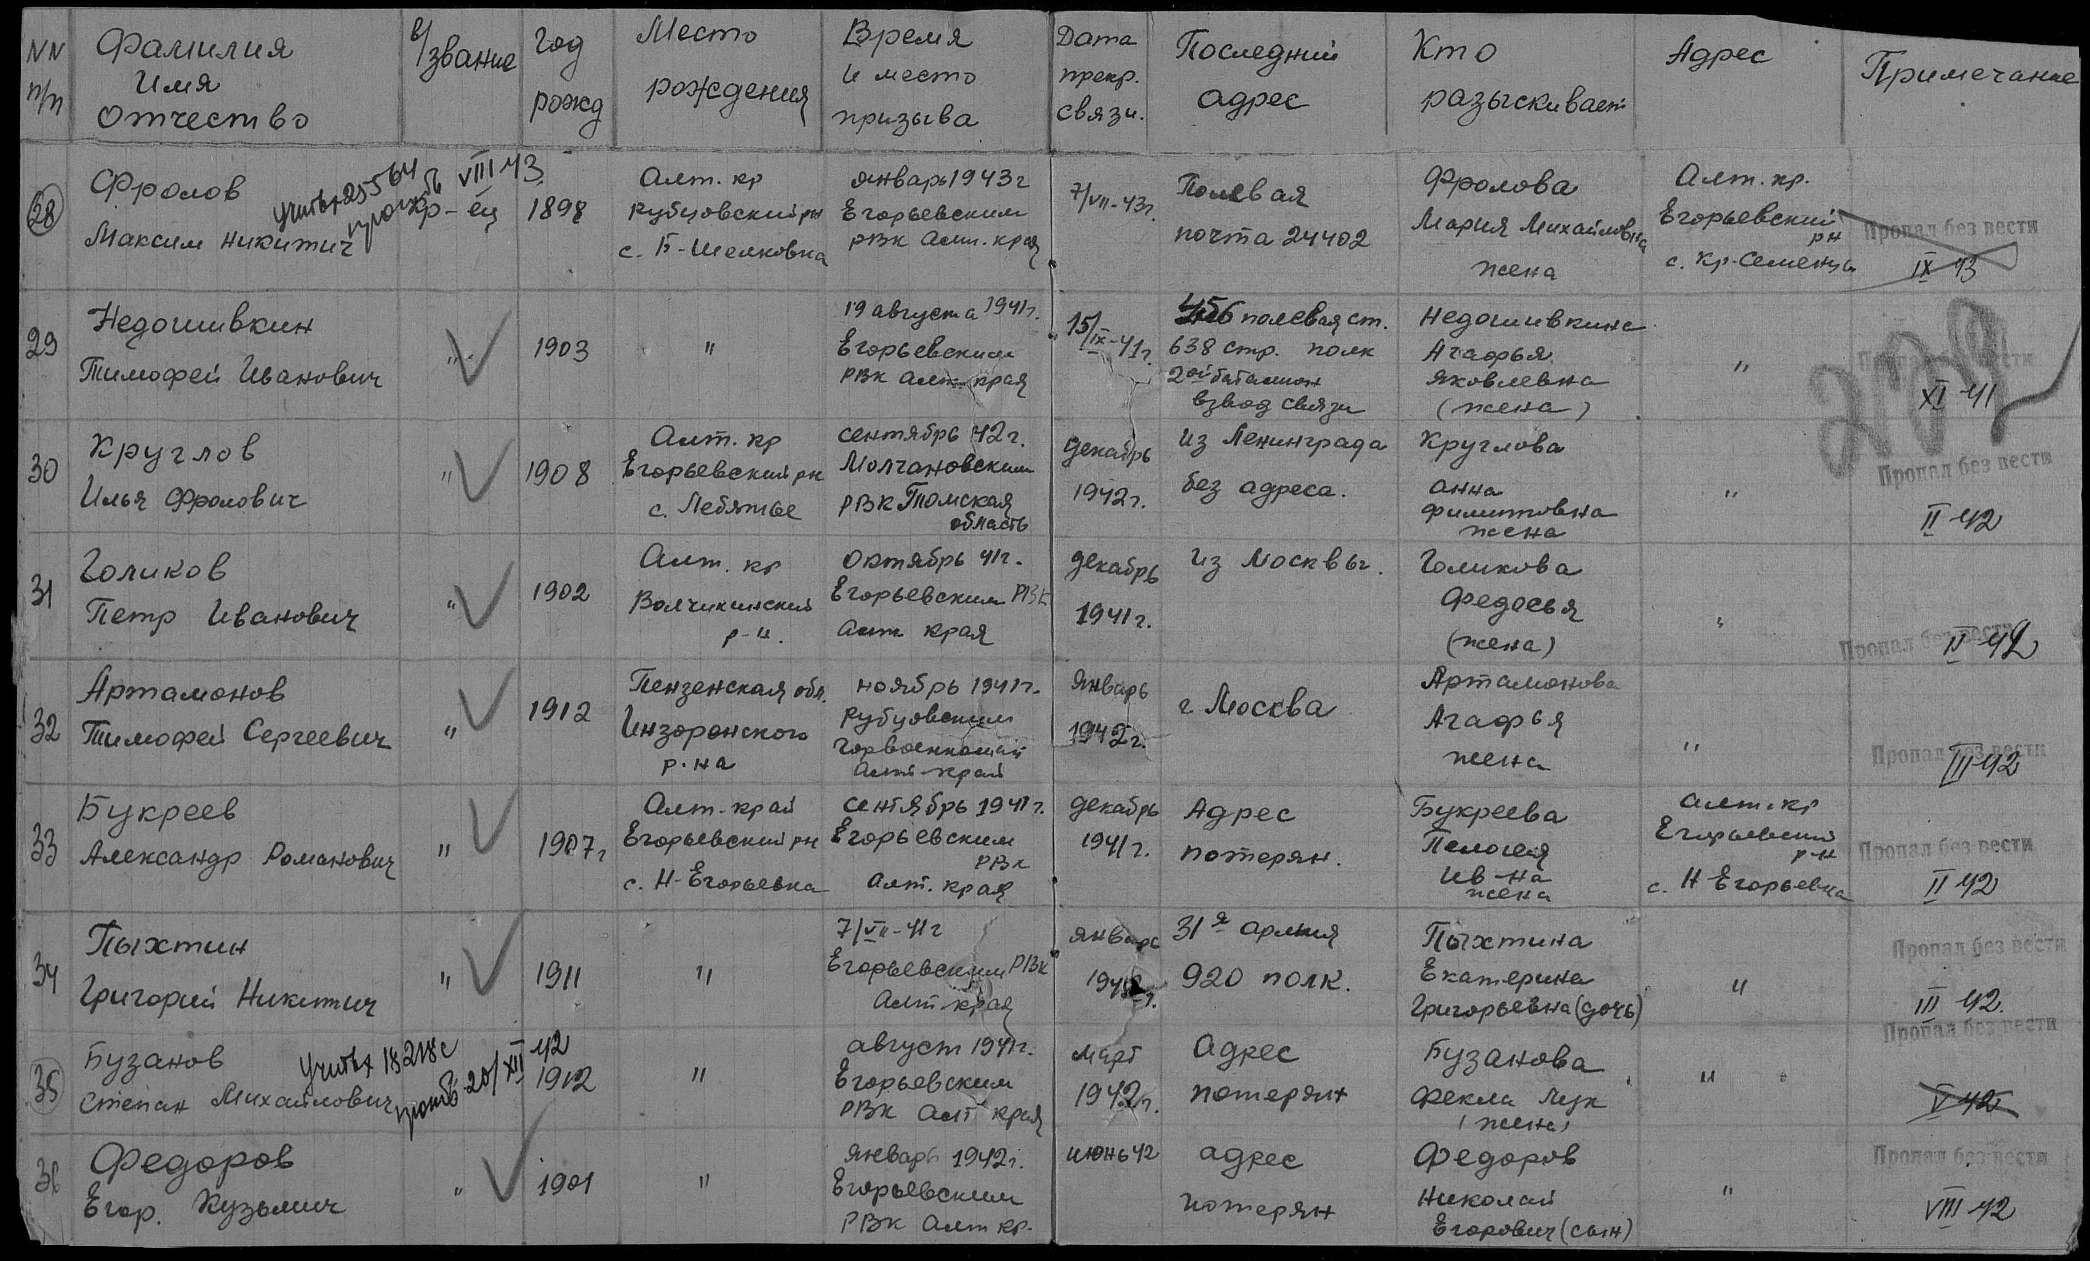 NN п/п
Фамилия Имя Отчество
в/звание
год рожд
Место рождения
Время и место призыва
Дата прекр. связи.
Последний адрес
Кто разыскивает
Адрес
Примечание
28
Фролов
Максим Никитич
учитен 25564
VIII 43
кр-ец
1898
Алт. кр
Рубцовский рн
с. Б-Шелковка
январь 1943 г
Егорьевским
РВК Алт. края
7/VII-43г.
Полевая
почта 24402
Фролова
Мария Михайловна
жена
Алт. кр.
Егорьевский
рн
с. Кр-Семенцы
Пропал без вести
IX 43
29
Недошивкин
Тимофей Иванович
"
1903
"
19 августа 1941г.
Егорьевским
РВК Алт. края
15/IX-41г.
456 полевая ст.
638 стр. полк
2ой батальон
взвод связи
Недошивкина
Агафья
Яковлевна
(жена)
"
Пропал без вести
XI 41
30
Круглов
Илья Фролович
"
1908
Алт. кр
Егорьевский рн
с. Лебяжье
сентябрь 42г.
Молчановским
РВК Томская
область
декабрь
1942г.
из Ленинграда
без адреса.
Круглова
Анна
Филиповна
жена
"
Пропал без вести
II 42
31
Голиков
Петр Иванович
"
1902
Алт. кр
Волчихинский
р-н.
октябрь 41г.
Егорьевским РВК
Алт края
декабрь
1941г.
из Москвы.
Голикова
Федосья
(жена)
"
Пропал без вести
II 42
32
Артамонов
Тимофей Сергеевич
"
1912
Пензенская обл.
Инзоронского
р.на
ноябрь 1941г.
Рубцовским
Горвоенкомат
Алт-край
январь
1942г.
г Москва
Артамонова
Агафья
жена
"
Пропал без вести
III 42
33
Букреев
Александр Романович
"
1907г
Алт. край
Егорьевский рн
с. Н-Егорьевка
сентябрь 1941г.
Егорьевским
РВК
Алт. края
декабрь
1941г.
Адрес
потерян.
Букреева
Пелогея
Ив-на
жена
Алт. кр
Егорьевский
р-н
с. Н-Егорьевка
Пропал без вести
II 42
34
Пыхтин
Григорий Никитич
"
1911
"
7/VII-41г
Егорьевским РВК
Алт-края
январь
1942г.
31я армия
920 полк.
Пыхтина
Екатерина
Григорьевна (дочь)
"
Пропал без вести
III 42.
35
Бузанов
Степан Михайлович
учитен 18218с
20/XII 42
1912
"
август 1941г.
Егорьевским
РВК Алт края
март
1942г.
адрес
потерян
Бузанова
Фекла Лук
(жена)
"
Пропал без вести
V 42
36
Федоров
Егор. Кузьмич
"
1901
"
январь 1942г.
Егорьевским
РВК Алт кр.
июнь 42
адрес
потерян
Федоров
Николай
Егорович (сын)
"
Пропал без вести
VIII 42